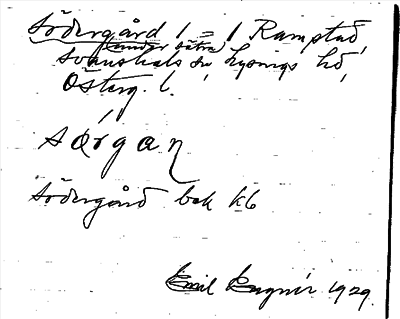 Södergård 1 = 1 Ramstad,
(under sätra)
Svanshals sn, Lysings hd,
Österg. l.
sǿrgan
Södergård bok kb
Emil Engnér 1929